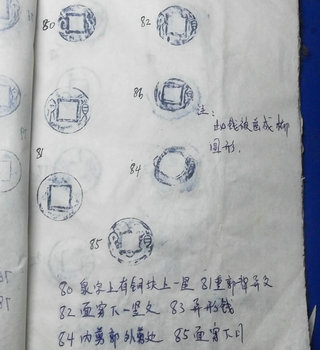 80
82
86
注:
此钱被画成椭
圆形.
81
84
85
80 泉字上有铜块上一星 81 重郭
82 面穿下一竖文 83 异形钱
84 内剪郭外剪边 85 面穿下月